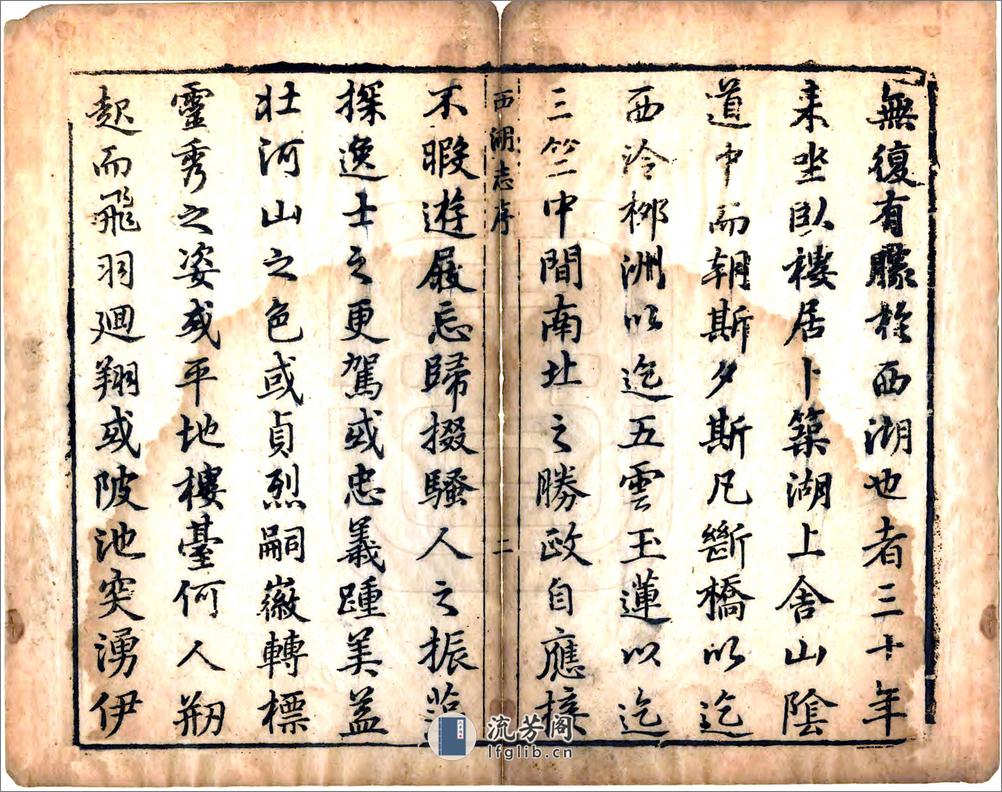 無復有朦於西湖也者三十年
来坐臥樓居卜築湖上舍山陰
道中而朝斯夕斯凡斷橋以迄
西泠柳洲以迄五雲玉蓮以迄
三竺中間南北之勝政自應接
西湖志序
二
不暇遊屐忘歸掇騷人之振
探逸士之更駕或忠義踵美益
壯河山之色或貞烈嗣徽轉標
靈秀之姿或平地樓臺何人剏
起而飛羽廻翔或陂池突湧伊
流芳阁
lfglib.cn